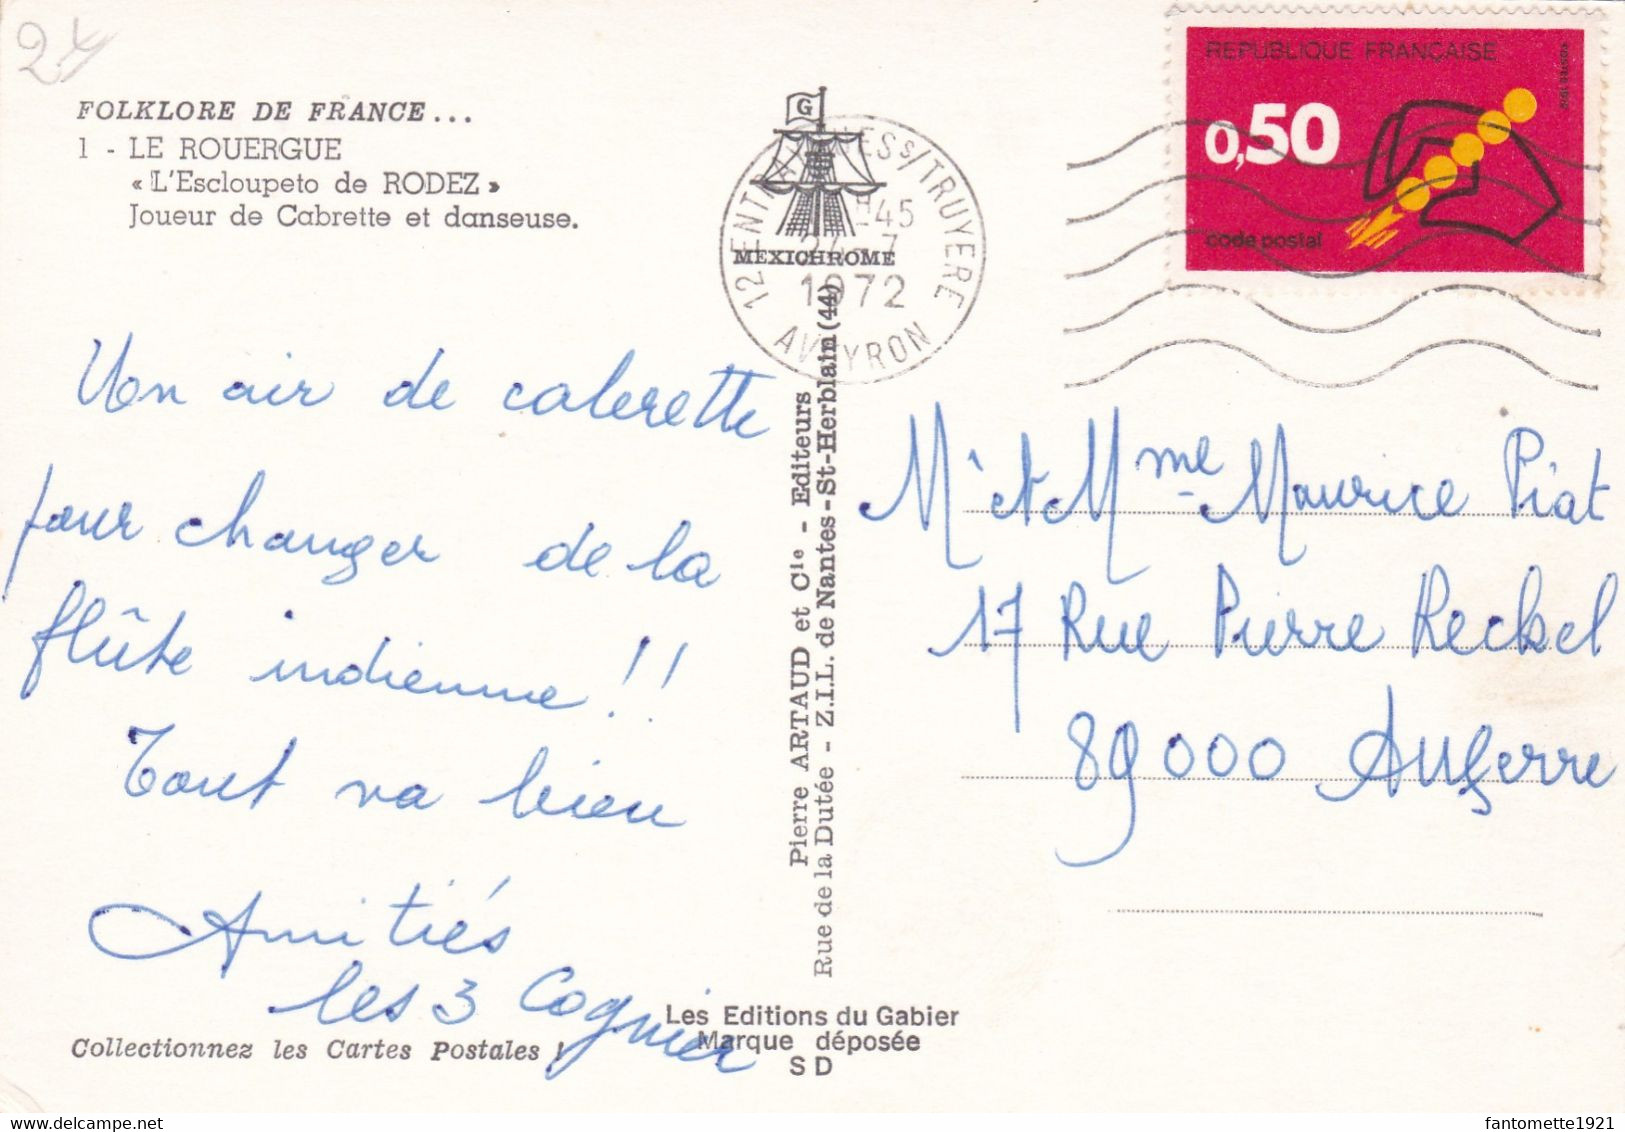 24
FOLKLORE DE FRANCE...
1 - LE ROUERGUE
« L'Escloupeto de RODEZ »
Joueur de Cabrette et danseuse.
Un air de cabrette
pour changer de la
flûte indienne !!
Tout va bien
Amitiés
les 3 Cognier
Collectionnez les Cartes Postales !
G
MEXICHROME
12 ENTRAYGUES S/TRUYERE
45
24-7
1972
AVEYRON
Pierre ARTAUD et Cie - Editeurs
Rue de la Dutée - Z.I.L. de Nantes-St-Herblain (44)
Les Editions du Gabier
Marque déposée
S D
REPUBLIQUE FRANÇAISE
0,50
code postal
POSTES 1972
Mr et Mme Maurice Piat
17 Rue Pierre Reckel
89000 Auxerre
fantomette1921